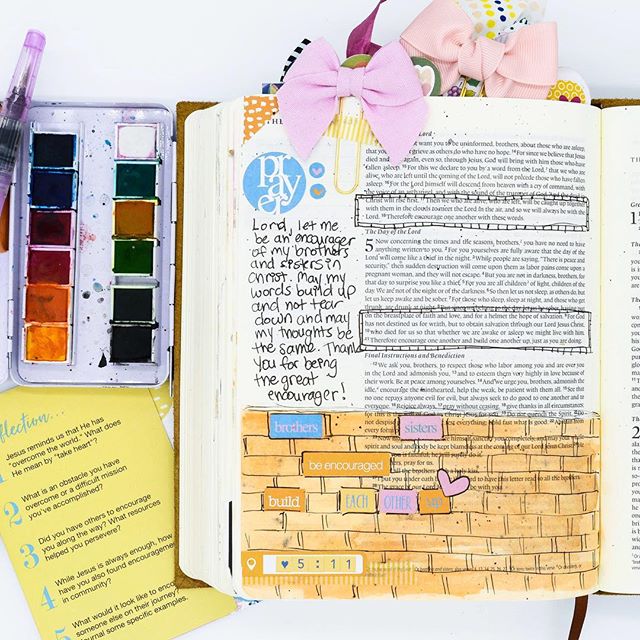 flection...
Jesus reminds us that He has
"overcome the world." What does
He mean by "take heart"?
2 What is an obstacle you have
overcome or a difficult mission
you've accomplished?
3 Did you have others to encourage
you along the way? What resources
helped you persevere?
4 While Jesus is always enough, how
have you also found encouragement
in community?
5 What would it look like to encour
someone else on their journey?
Journal some specific examples.
prayer
Lord, let me
be an encourager
of my brothers
and sisters in
Christ. May my
words build up
and not tear
down and may
my thoughts be
the same. Thank
you for being
the great
encourager!
Lord
want you to be uninformed, brothers, about those who are asleep,
grieve as others do who have no hope. 14 For since we believe that Jesus
died and
again, even so, through Jesus, God will bring with him those who have
fallen asleep. 15 For this we declare to you by a word from the Lord, that we who are
alive, who are left until the coming of the Lord, will not precede those who have fallen
asleep. 16 For the Lord himself will descend from heaven with a cry of command, with
the voice of an archangel, and with the sound of the trumpet of God. And the dead in
Christ will rise first. 17 Then we who are alive, who are left, will be caught up together
with them in the clouds to meet the Lord in the air, and so we will always be with the
Lord. 18 Therefore encourage one another with these words.
The Day of the Lord
5 Now concerning the times and the seasons, brothers, you have no need to have
anything written to you. 2 For you yourselves are fully aware that the day of the
Lord will come like a thief in the night. 3 While people are saying, "There is peace and
security," then sudden destruction will come upon them as labor pains come upon a
pregnant woman, and they will not escape. 4 But you are not in darkness, brothers, for
that day to surprise you like a thief. 5 For you are all children of light, children of the
day. We are not of the night or of the darkness. 6 So then let us not sleep, as others do, but
let us keep awake and be sober. 7 For those who sleep, sleep at night, and those who get
drunk, are drunk at night.
on the breastplate of faith and love, and for a helmet the hope of salvation. 9 For God
has not destined us for wrath, but to obtain salvation through our Lord Jesus Christ,
10 who died for us so that whether we are awake or asleep we might live with him.
11 Therefore encourage one another and build one another up, just as you are doing.
Final Instructions and Benediction
12 We ask you, brothers, to respect those who labor among you and are over you
in the Lord and admonish you, 13 and to esteem them very highly in love because of
their work. Be at peace among yourselves. 14 And we urge you, brothers, admonish the
idle, encourage the fainthearted, help the weak, be patient with them all. 15 See that
no one repays anyone evil for evil, but always seek to do good to one another and to
everyone. 16 Rejoice always, 17 pray without ceasing, 18 give thanks in all circumstances;
brothers
sisters
be encouraged
build EACH OTHER up
5:11